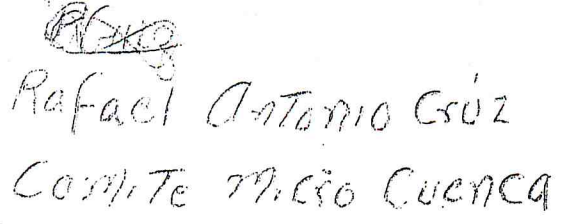 Rafael Antonio Crúz
Comite Micro Cuenca